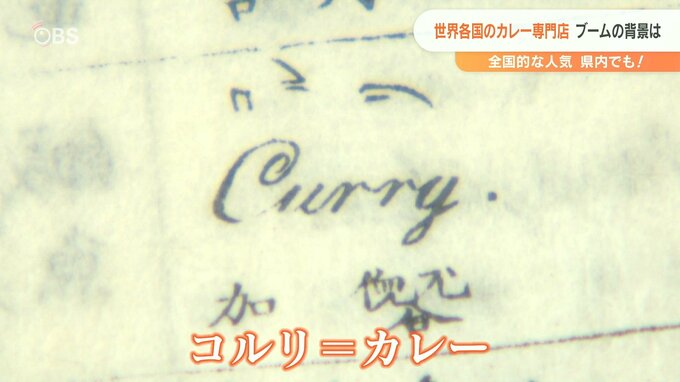 OBS
世界各国のカレー専門店 ブームの背景は
全国的な人気 県内でも!
Curry.
加
コルリ=カレー